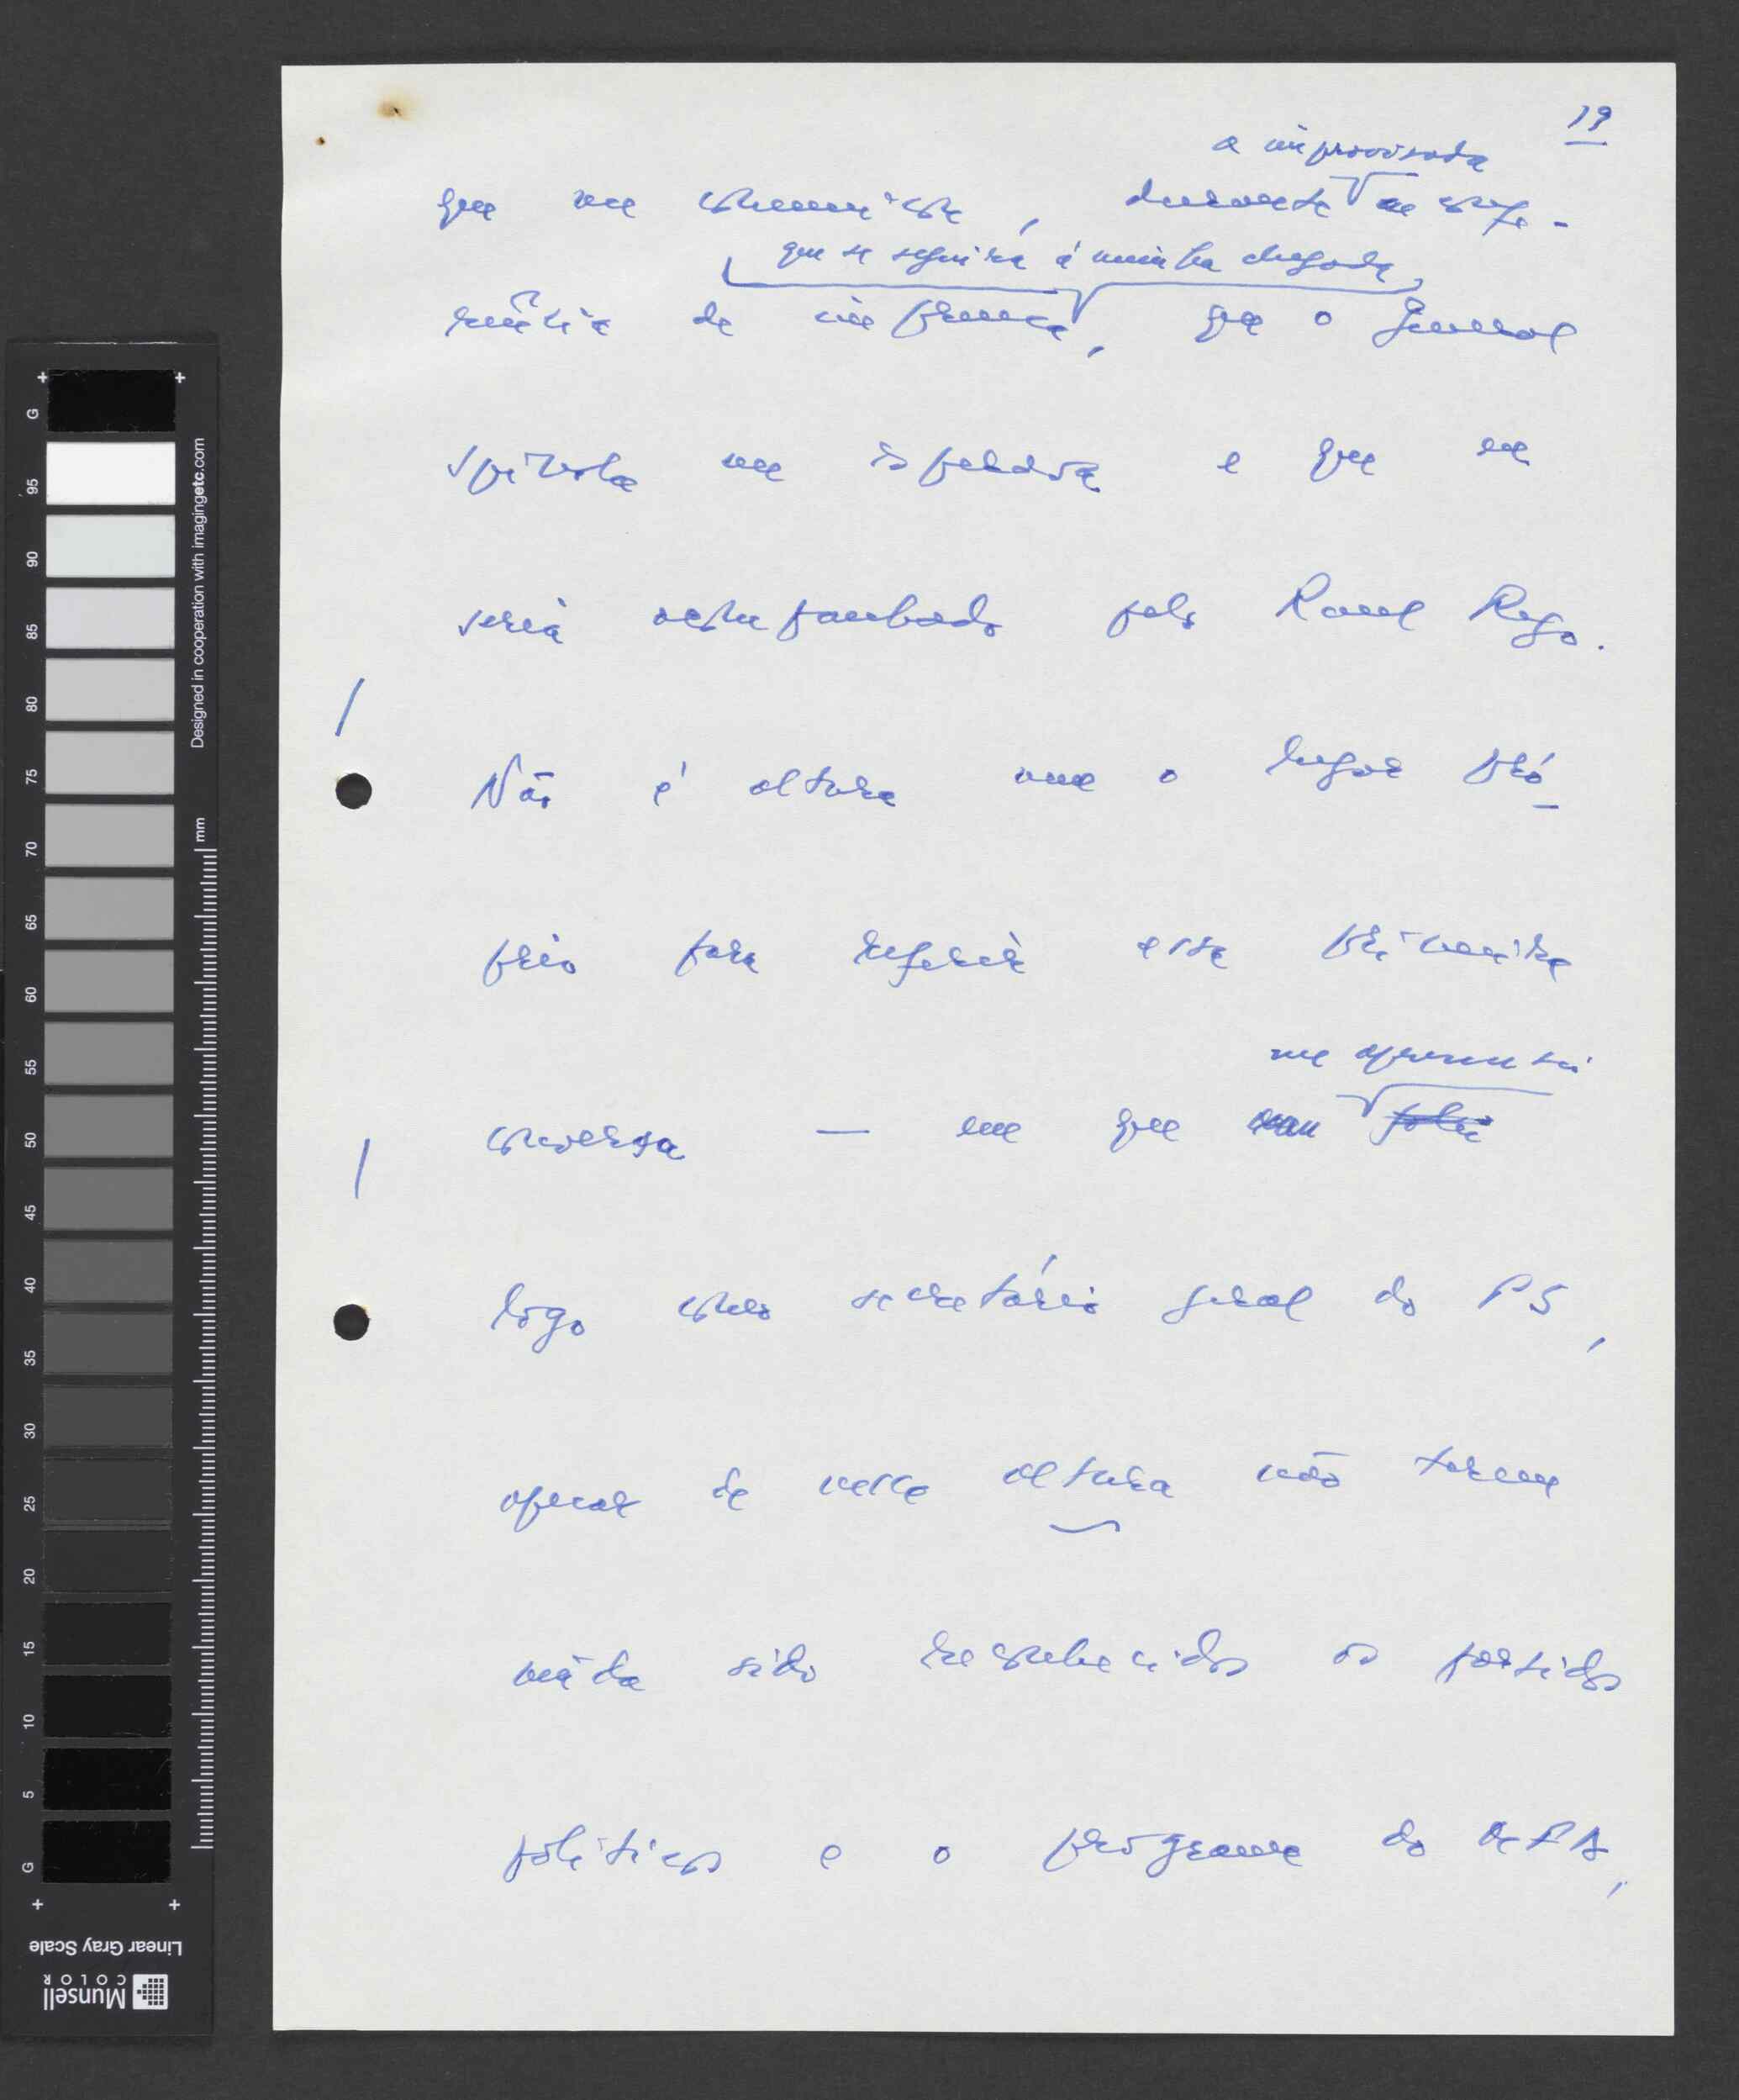 19
a improvisada
que me comunicou, durante a confe-
que se seguira à minha chegada,
rência de imprensa, que o General
Spínola me esperava e que
seria acompanhado pelo Raul Rego.
/
Não é altura nem o lugar pró-
prio para referir essa primeira
me apresentei
conversa — em que
/
logo como secretário geral do PS,
apesar de nessa altura não terem
ainda sido reconhecidos os partidos
políticos e o programa do MFA,
G
95
90
85
80
75
70
65
60
55
50
45
40
35
30
25
20
15
10
5
G
Designed in cooperation with imagingetc.com
mm
Linear Gray Scale
Munsell
COLOR